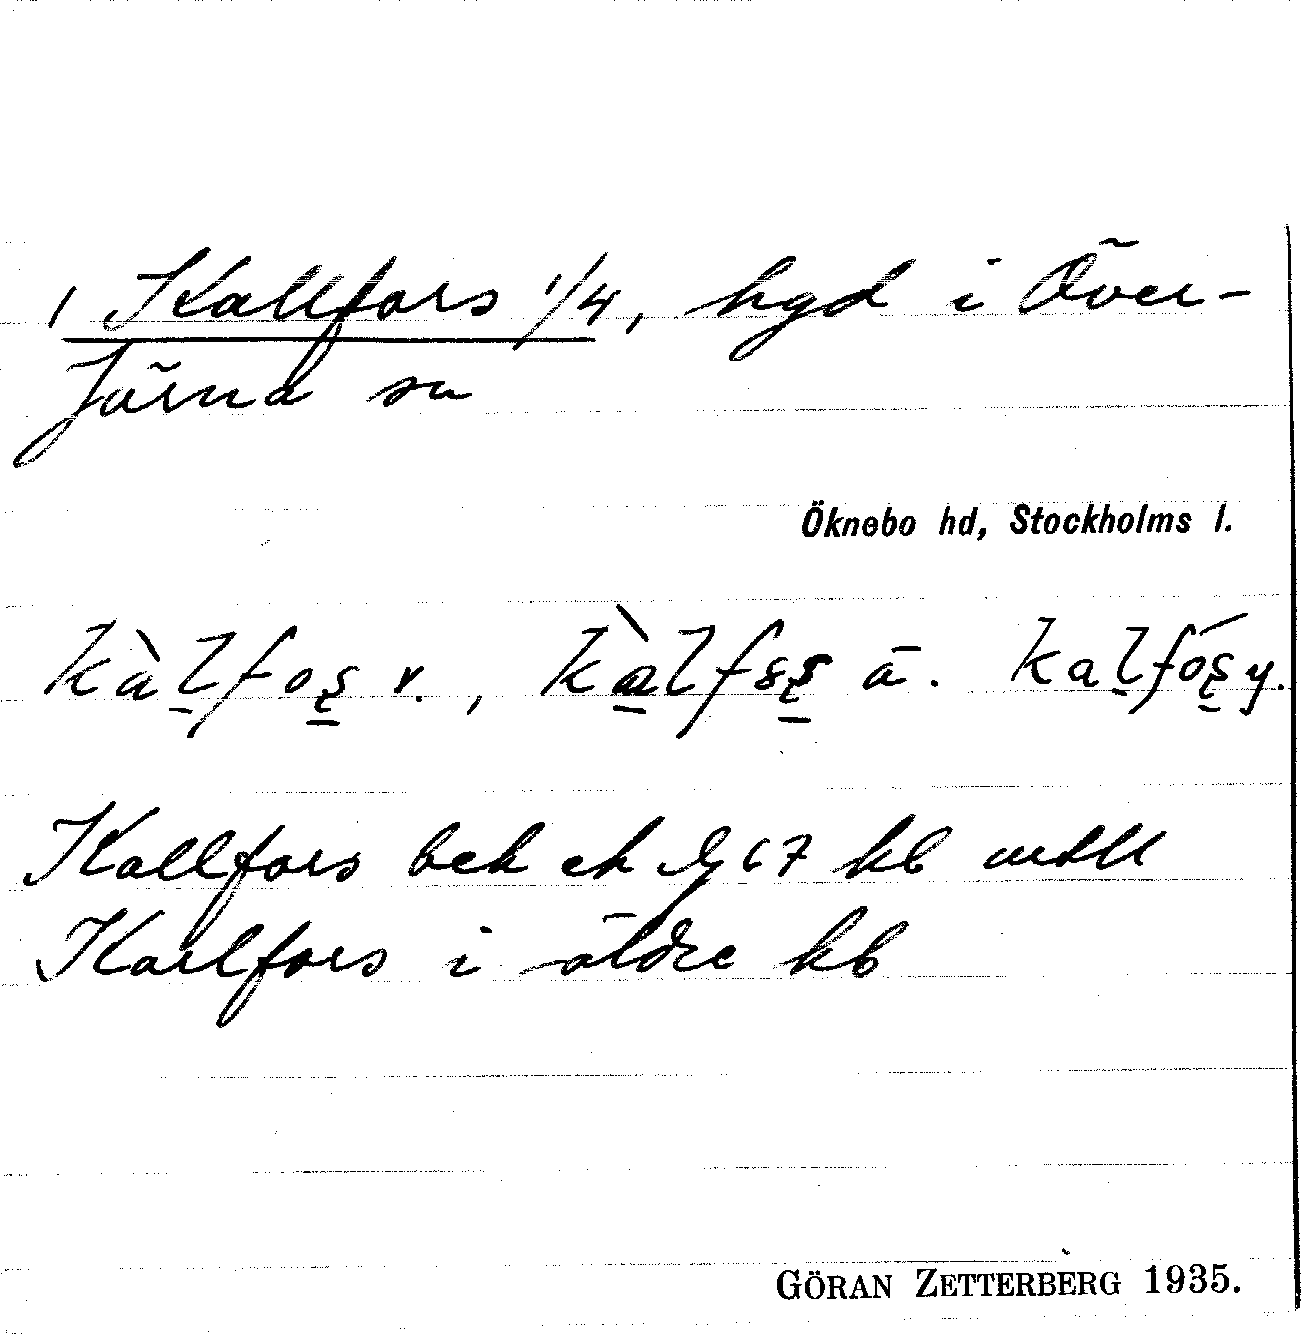 1 Kallfors 1/4, hgd i Över-
Järna sn
Öknebo hd, Stockholms l.
kàlfoş v., kàlfsş ä. kalfóş y.
Kallfors bek ek 67 kb
Karlfors i äldre kb
GÖRAN ZETTERBERG 1935.